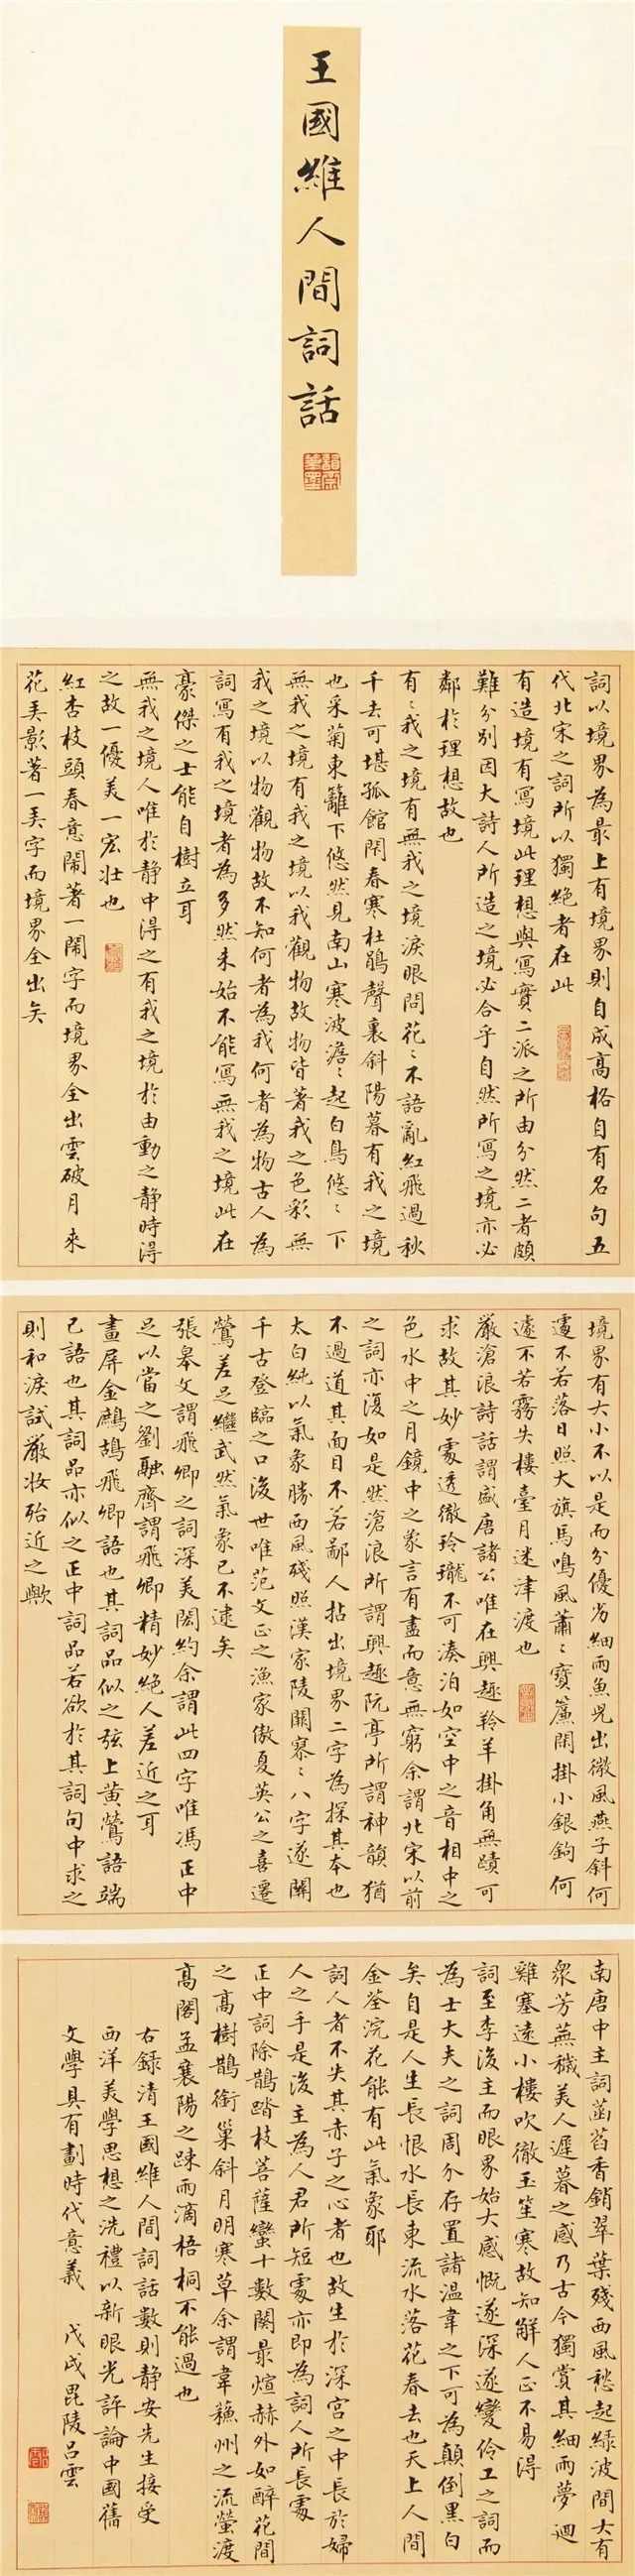 王國維人間詞話
詞以境界為最上有境界則自成高格自有名句五
代北宋之詞所以獨絕者在此
有造境有寫境此理想與寫實二派之所由分然二者頗
難分別因大詩人所造之境必合乎自然所寫之境亦必
鄰於理想故也
有〻我之境有無我之境淚眼問花〻不語亂紅飛過秋
千去可堪孤館閉春寒杜鵑聲裏斜陽暮有我之境
也采菊東籬下悠然見南山寒波澹〻起白鳥悠〻下
無我之境有我之境以我觀物故物皆著我之色彩無
我之境以物觀物故不知何者為我何者為物古人為
詞寫有我之境者為多然未始不能寫無我之境此在
豪傑之士能自樹立耳
無我之境人唯於靜中得之有我之境於由動之靜時得
之故一優美一宏壯也
紅杏枝頭春意鬧著一鬧字而境界全出雲破月來
花弄影著一弄字而境界全出矣
境界有大小不以是而分優劣細雨魚兒出微風燕子斜何
遽不若落日照大旗馬鳴風蕭〻寶簾閒掛小銀鉤何
遽不若霧失樓臺月迷津渡也
嚴滄浪詩話謂盛唐諸公唯在興趣羚羊掛角無蹟可
求故其妙處透徹玲瓏不可湊泊如空中之音相中之
色水中之月鏡中之象言有盡而意無窮余謂北宋以前
之詞亦復如是然滄浪所謂興趣阮亭所謂神韻猶
不過道其面目不若鄙人拈出境界二字為探其本也
太白純以氣象勝西風殘照漢家陵闕寥〻八字遂關
千古登臨之口後世唯范文正之漁家傲夏英公之喜遷
鶯差足繼武然氣象已不逮矣
張皋文謂飛卿之詞深美閎約余謂此四字唯馮正中
足以當之劉融齋謂飛卿精妙絕人差近之耳
畫屏金鷓鴣飛卿語也其詞品似之弦上黃鶯語端
己語也其詞品亦似之正中詞品若欲於其詞句中求之
則和淚試嚴妝殆近之歟
南唐中主詞菡萏香銷翠葉殘西風愁起綠波間大有
眾芳蕪穢美人遲暮之感乃古今獨賞其細雨夢迴
雞塞遠小樓吹徹玉笙寒故知解人正不易得
詞至李後主而眼界始大感慨遂深遂變伶工之詞而
為士大夫之詞周介存置諸溫韋之下可為顛倒黑白
矣自是人生長恨水長東流水落花春去也天上人間
金荃浣花能有此氣象耶
詞人者不失其赤子之心者也故生於深宮之中長於婦
人之手是後主為人君所短處亦即為詞人所長處
正中詞除鵲踏枝菩薩蠻十數闋最煊赫外如醉花間
之高樹鵲銜巢斜月明寒草余謂韋蘇州之流螢渡
高閣孟襄陽之疎雨滴梧桐不能過也
右錄清王國維人間詞話數則靜安先生接受
西洋美學思想之洗禮以新眼光評論中國舊
文學具有劃時代意義 戊戌毘陵呂雲